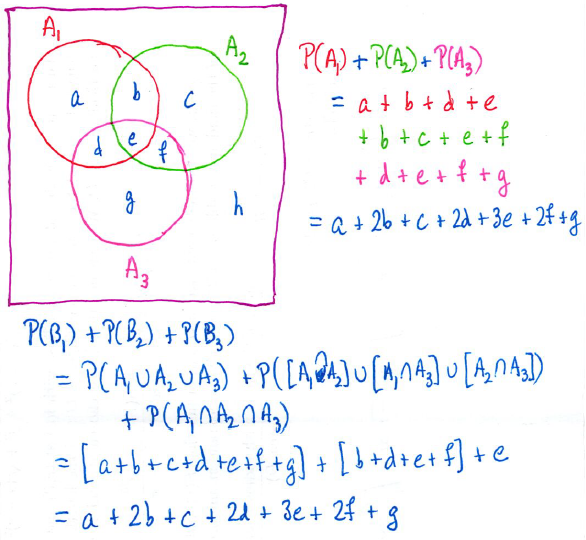 A₁
A₂
a
b
c
d
e
f
g
h
A₃
P(A₁) + P(A₂) + P(A₃)
= a + b + d + e
+ b + c + e + f
+ d + e + f + g
= a + 2b + c + 2d + 3e + 2f + g
P(B₁) + P(B₂) + P(B₃)
= P(A₁ ∪ A₂ ∪ A₃) + P([A₁ ∩ A₂] ∪ [A₁ ∩ A₃] ∪ [A₂ ∩ A₃])
+ P(A₁ ∩ A₂ ∩ A₃)
= [a + b + c + d + e + f + g] + [b + d + e + f] + e
= a + 2b + c + 2d + 3e + 2f + g